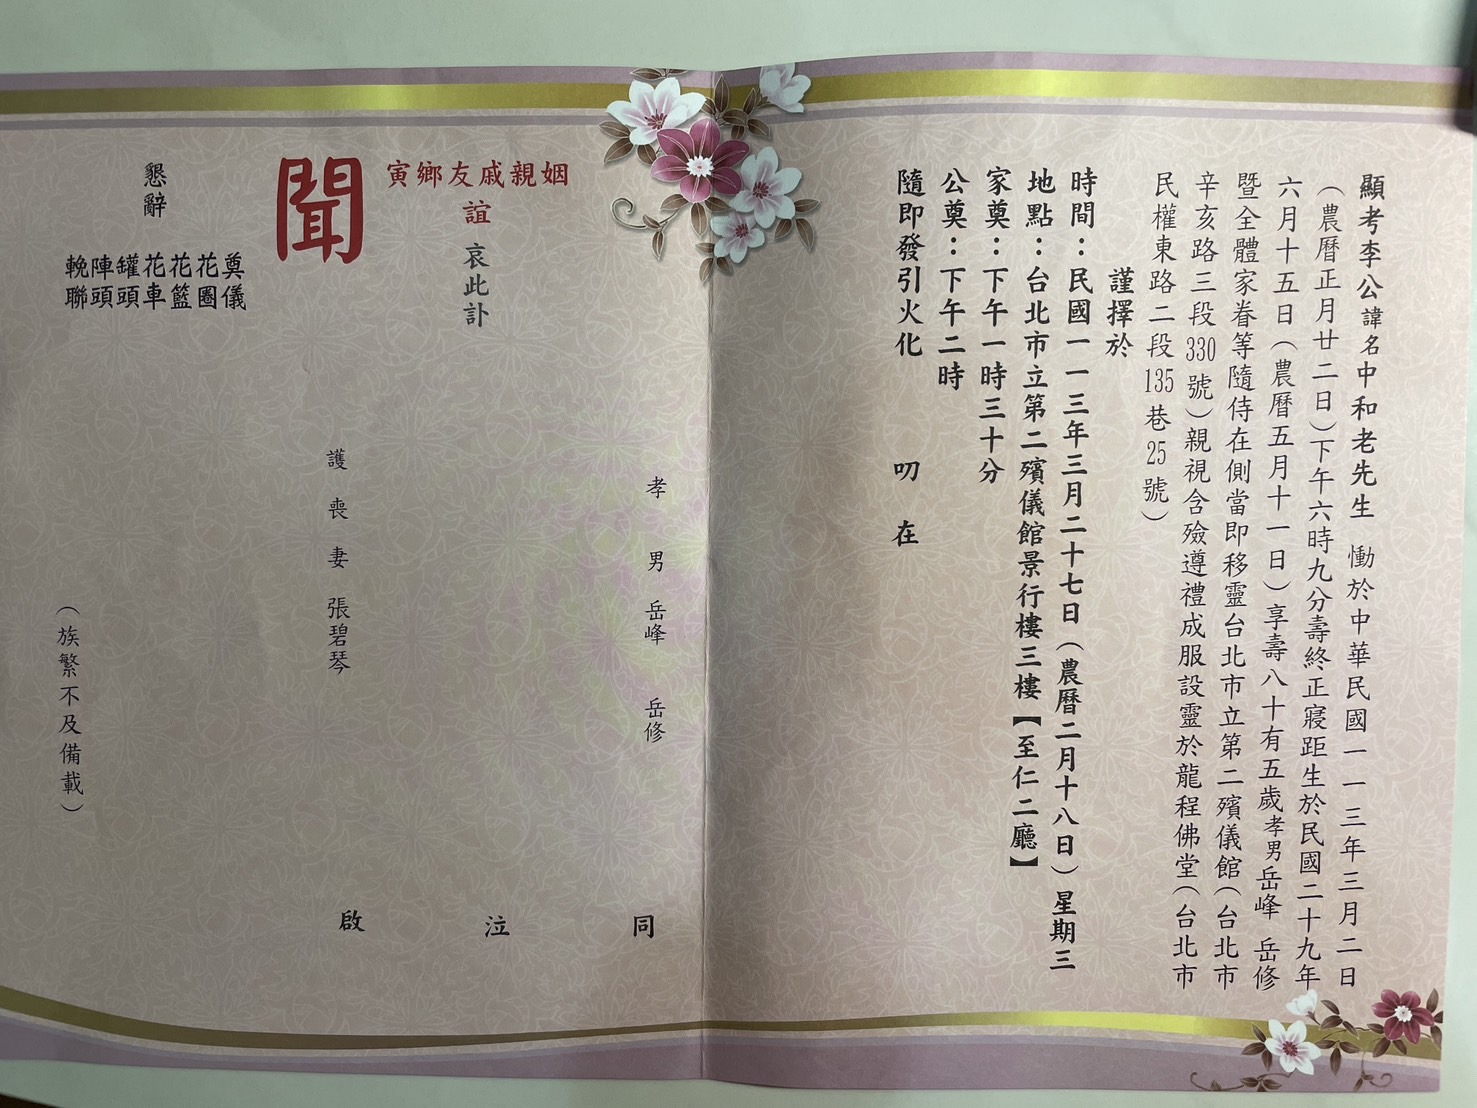 顯考李公諱名中和老先生　慟於中華民國一一三年三月二日
（農曆正月廿二日）下午六時九分壽終正寢距生於民國二十九年
六月十五日（農曆五月十一日）享壽八十有五歲孝男岳峰　岳修
暨全體家眷等隨侍在側當即移靈台北市立第二殯儀館（台北市
辛亥路三段330號）親視含殮遵禮成服設靈於龍程佛堂（台北市
民權東路二段135巷25號）
謹擇於
時間：民國一一三年三月二十七日（農曆二月十八日）星期三
地點：台北市立第二殯儀館景行樓三樓【至仁二廳】
家奠：下午一時三十分
公奠：下午二時
隨即發引火化　　叨　在
姻親戚友鄉寅
誼　哀此訃
聞
懇辭
奠儀
花圈
花籃
花車
罐頭
陣頭
輓聯
孝男　岳峰　岳修
護喪妻　張碧琴
（族繁不及備載）
同　泣　啟